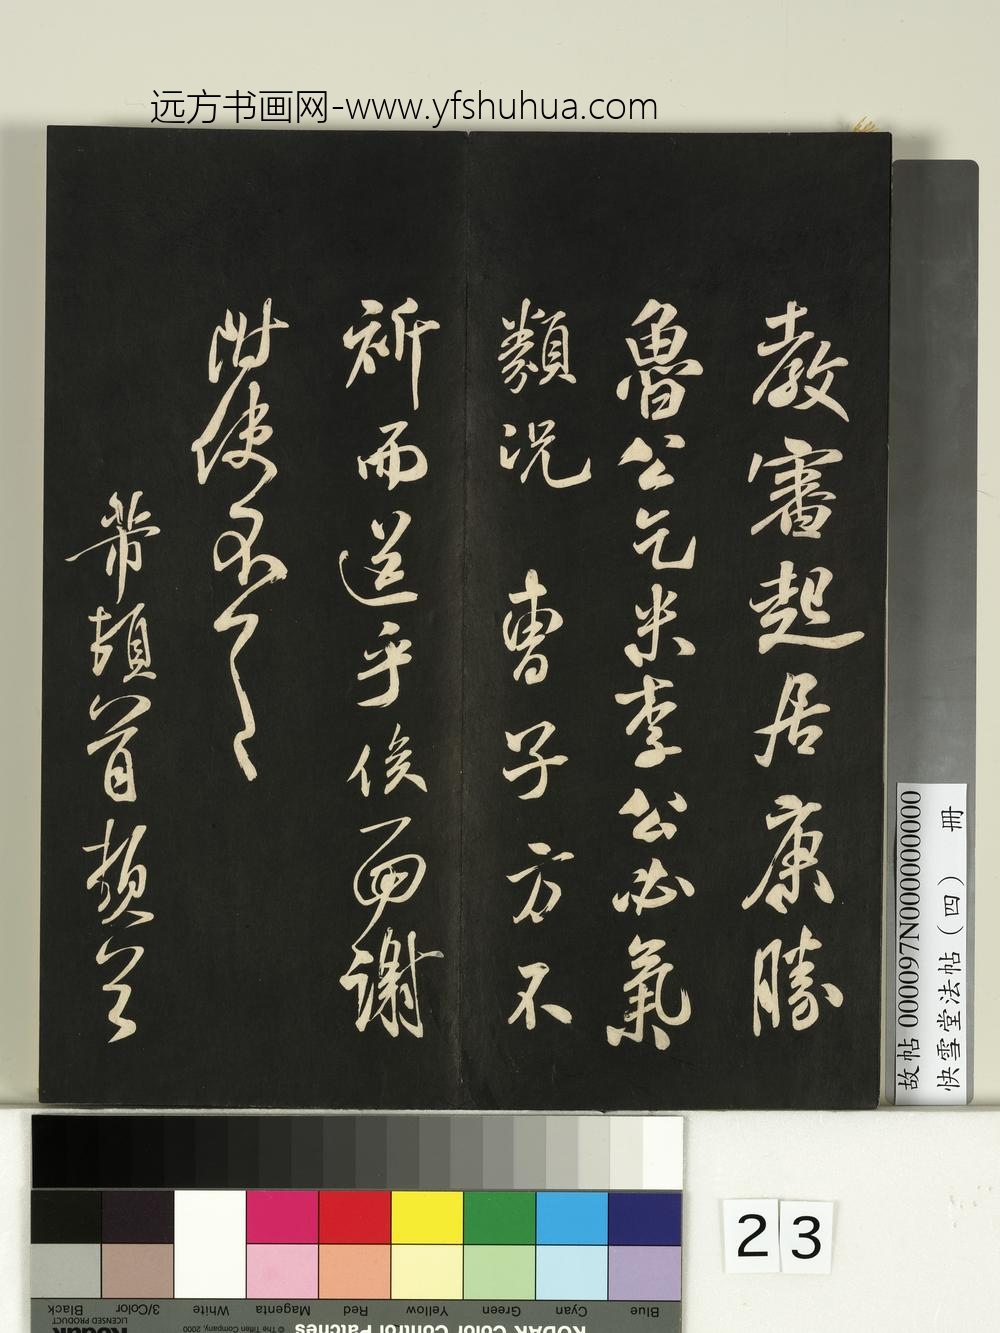 远方书画网-www.yfshuhua.com
教審起居康勝
魯公乞米李公必氣
類況 曹子方不
祈而送乎俟面謝
附使不一一
芾頓首頓首
故帖 000097N000000000
快雪堂法帖（四） 冊
23
Black
3/Color
White
Magenta
Red
Yellow
Green
Cyan
Blue
Kodak
LICENSED PRODUCT
© The Tiffen Company, 2000
KODAK Color Control Patches